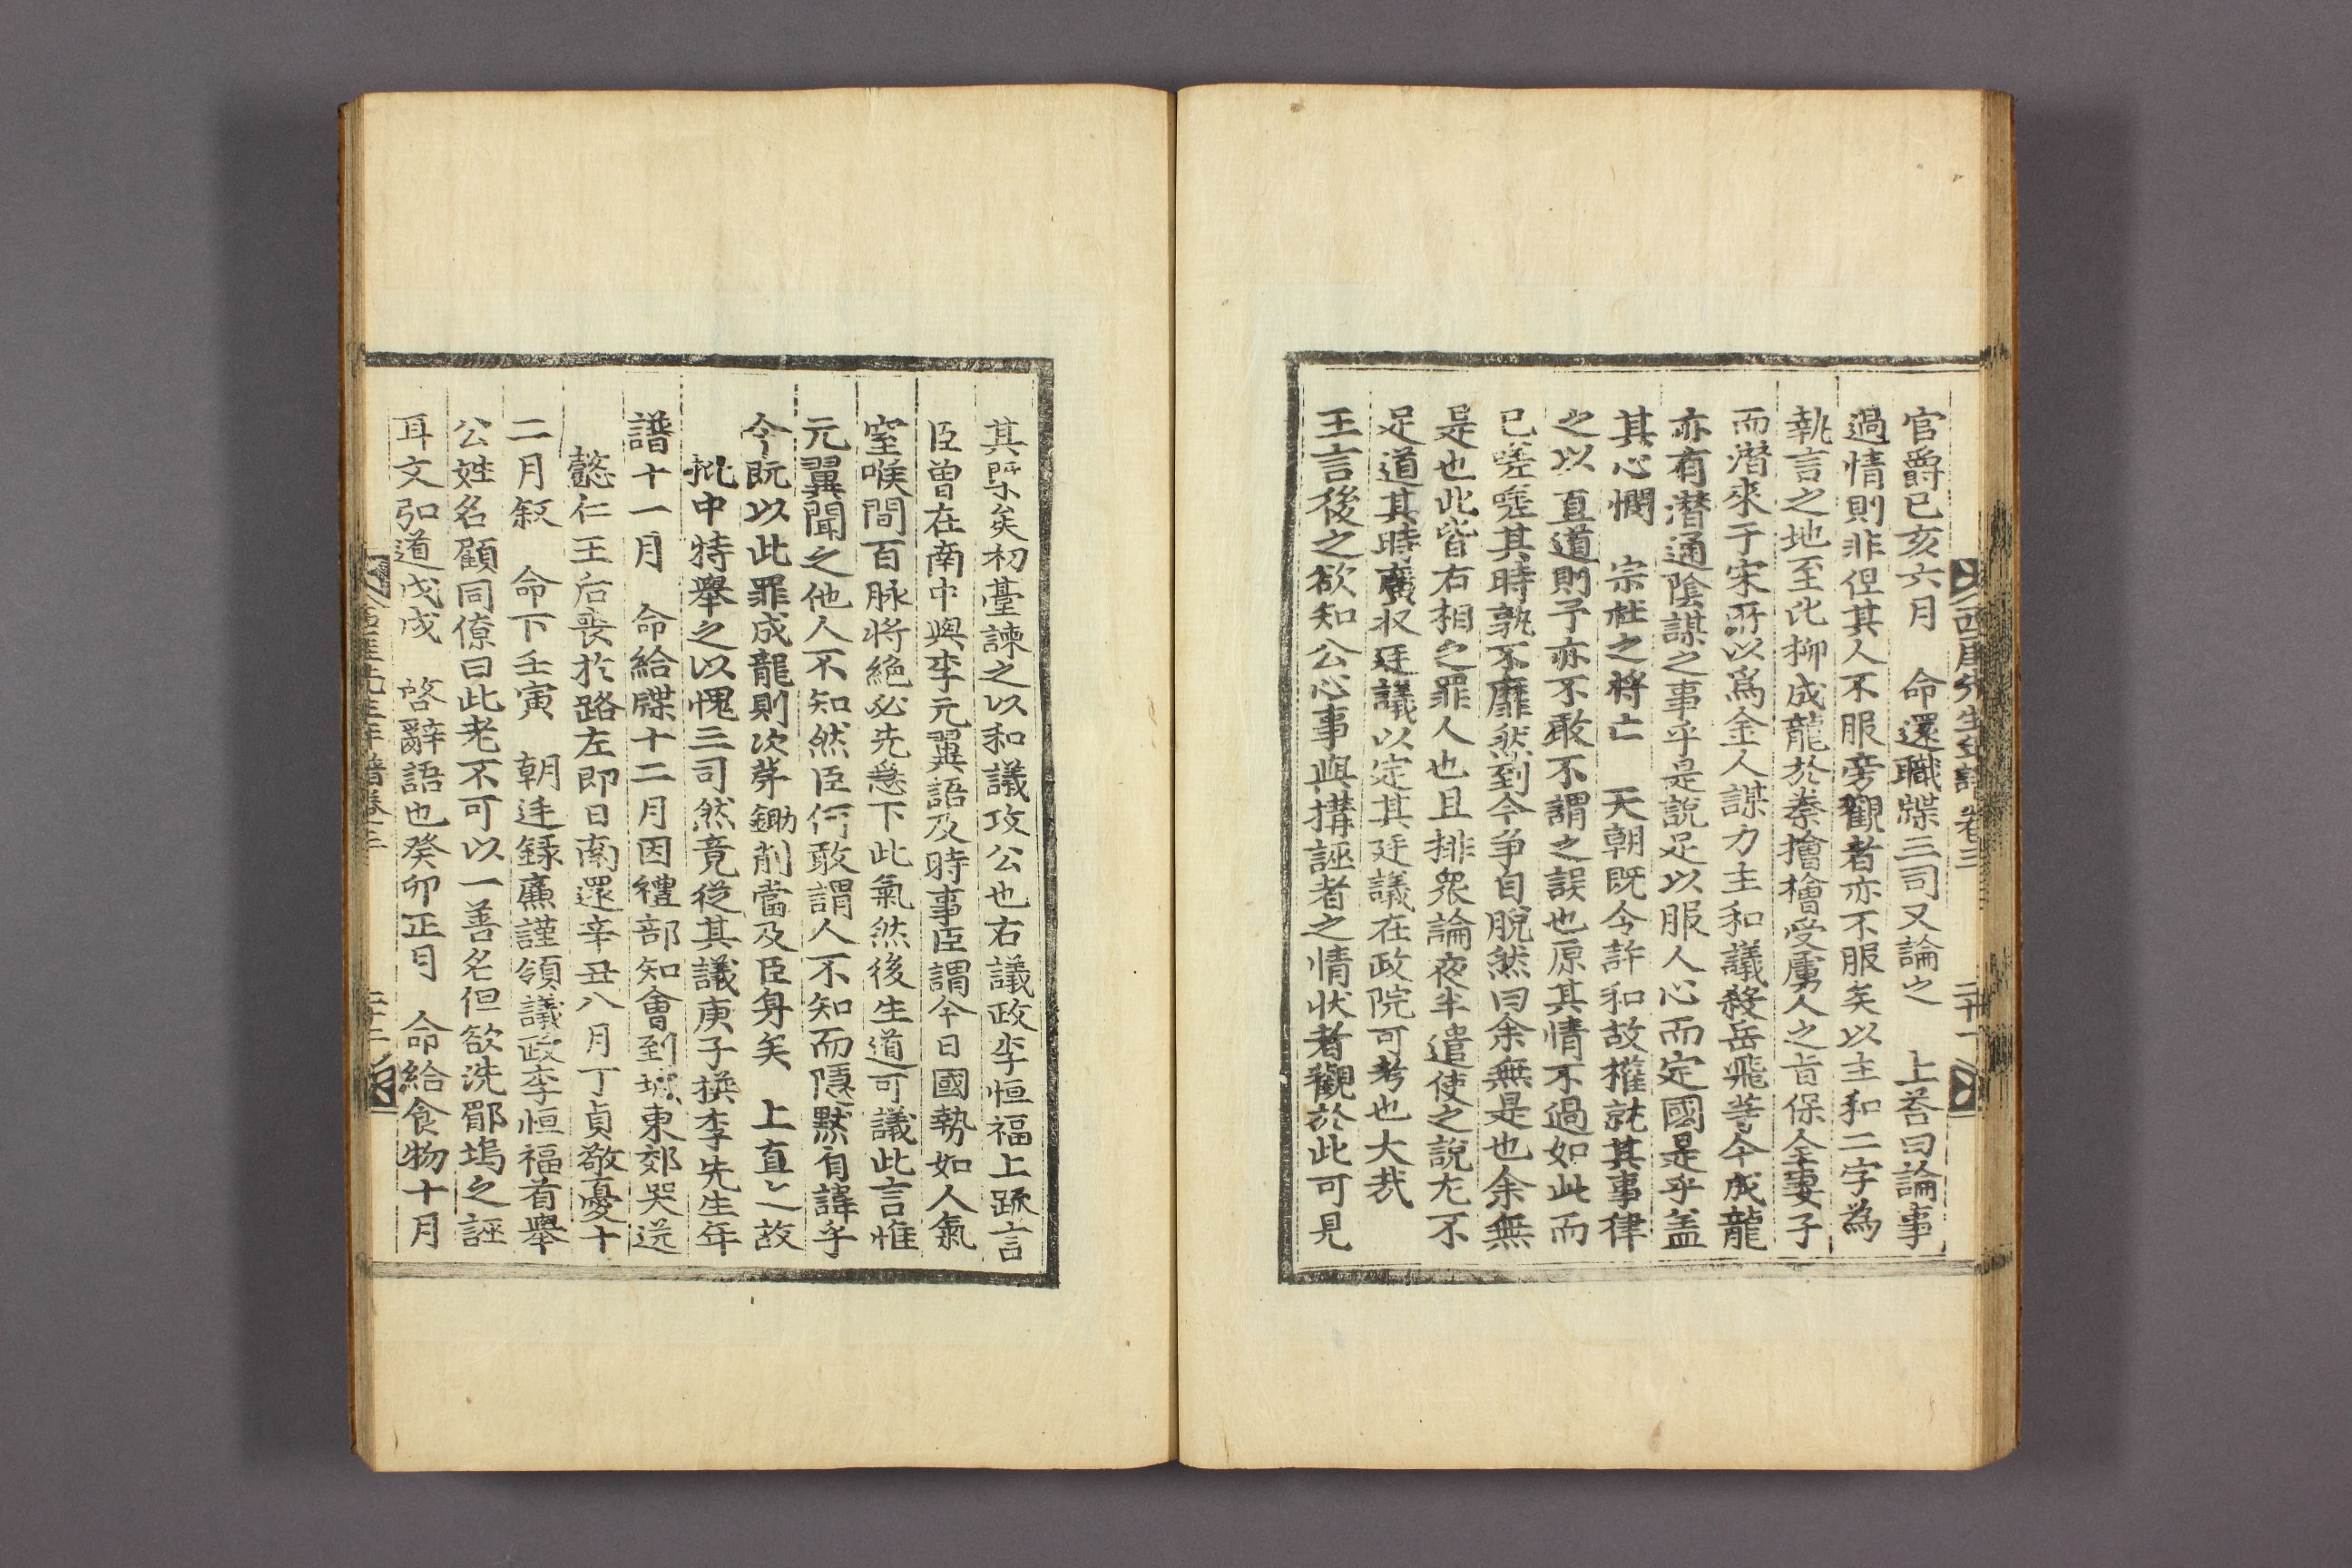 西厓先生年譜卷三 二十一
官爵已亥六月 命還職牒三司又論之 上荅曰論事
過情則非但其人不服旁觀者亦不服矣以主和二字為
執言之地至比柳成龍於秦檜檜受虜人之旨保全妻子
而潛來于宋所以爲金人謀力主和議殺岳飛等今成龍
亦有潛通陰謀之事乎是說足以服人心而定國是乎盖
其心憫 宗社之將亡 天朝既令許和故權就其事律
之以直道則予亦不敢不謂之誤也原其情不過如此而
已嗟嗟其時孰不靡然到今争自脫然曰余無是也余無
是也此皆右相之罪人也且排衆論夜半遣使之說尤不
足道其時廣收廷議以定其廷議在政院可考也大哉
王言後之欲知公心事與搆誣者之情狀者觀於此可見
其槩矣初臺諫之以和議攻公也右議政李恒福上疏言
臣曾在南中與李元翼語及時事臣謂今日國勢如人氣
窒喉間百脉將絶必先急下此氣然後生道可議此言惟
元翼聞之他人不知然臣何敢謂人不知而隱默自諱乎
今既以此罪成龍則次苐鋤削當及臣身矣 上直之故
批中特舉之以愧三司然竟從其議庚子撰李先生年
譜十一月 命給牒十二月因禮部知會到城東郊哭送
懿仁王后喪於路左即日南還辛丑八月丁貞敬憂十
二月叙 命下壬寅 朝廷錄廉謹領議政李恒福首舉
公姓名顧同僚曰此老不可以一善名但欲洗郿塢之誣
耳文弘道戊戌 啓辭語也癸卯正月 命給食物十月
西厓先生年譜卷三 二十二